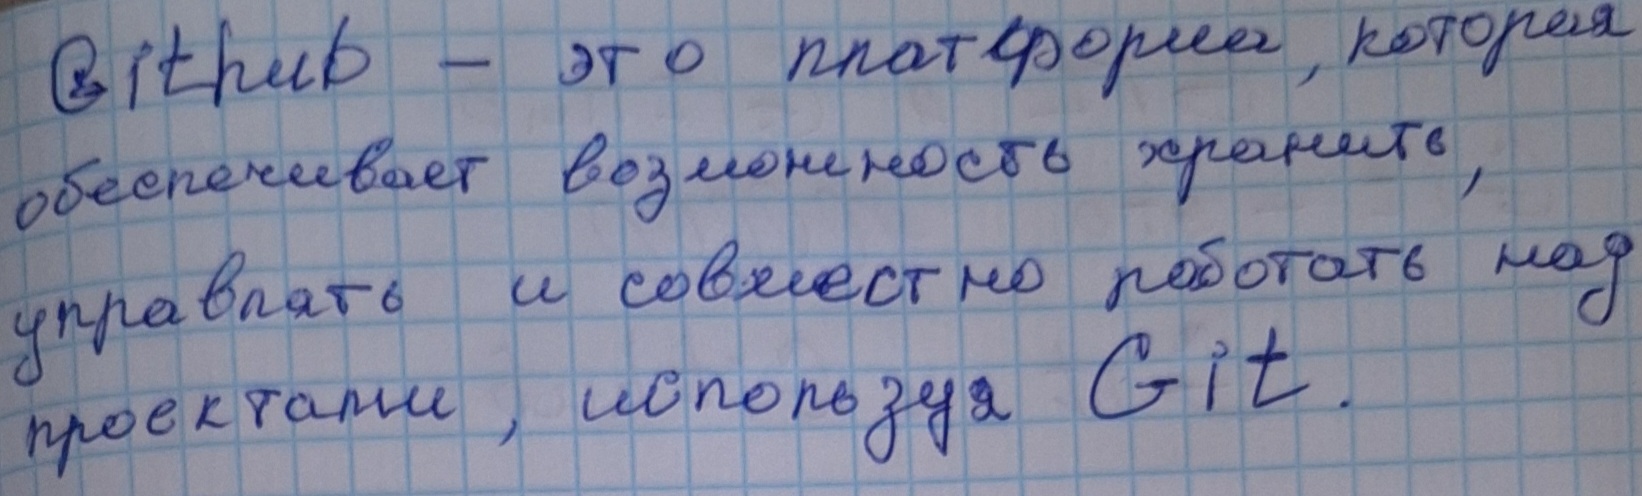 Github - это платформа, которая
обеспечивает возможность хранить,
управлять и совместно работать над
проектами, используя Git.